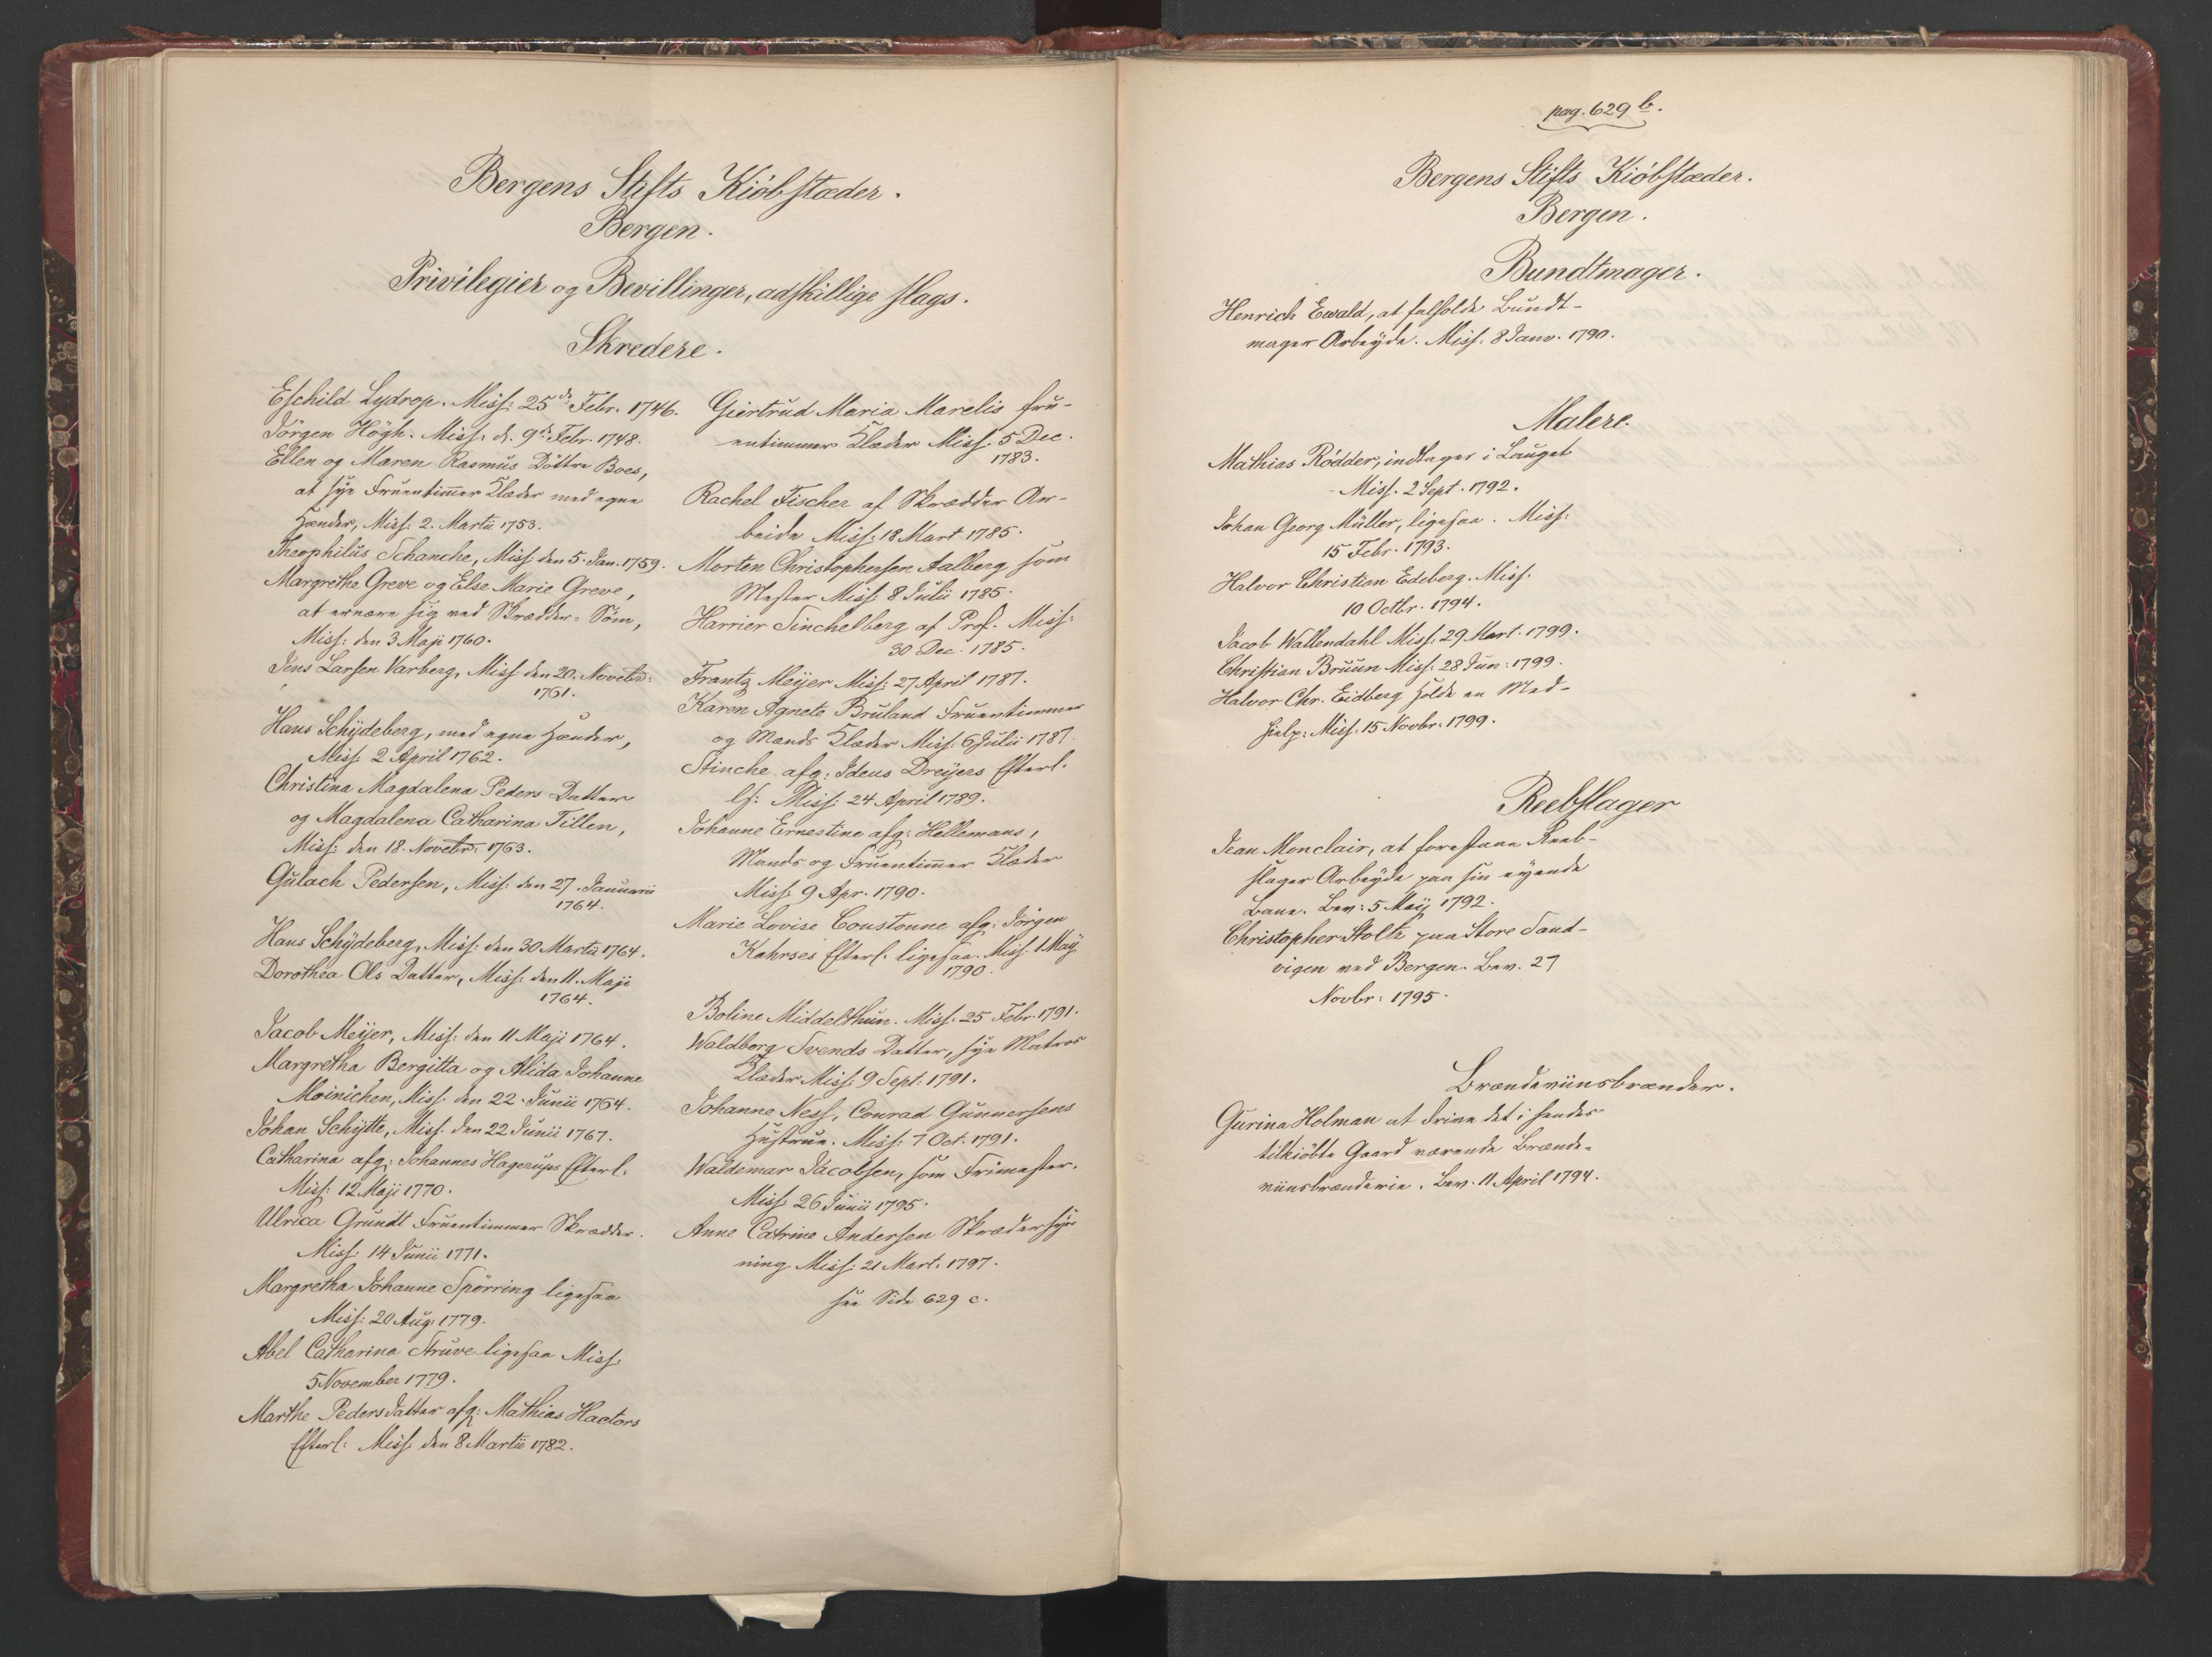 Bergens Stifts Kiöbstæder.
Bergen.
Privilegier og Bevillinger, adskillige slags.
Skredere.
Eschild Lydrop. Miss: 25de Febr. 1746.
Jörgen Högh. Miss: d. 9de Febr. 1748.
Ellen og Maren Rasmus Döttre Boes,
at sye Fruentimer Klæder med egne
Hænder, Miss: 2. Martii 1753.
Theophilus Schanche, Miss den 5. Jan. 1759.
Margrethe Greve og Else Marie Greve,
at ernære sig ved Skrædder-Söm,
Miss: den 3 Maji 1760.
Jens Larsen Varberg, Miss den 20. Novebr:
1761.
Hans Schÿdeberg, med egne Hænder,
Miss: 2 April 1762.
Christina Magdalena Peders Datter
og Magdalena Catharina Tillen,
Miss: den 18. Novebr: 1763.
Gulach Pedersen, Miss: den 27. Januarii
1764.
Hans Schÿdeberg, Miss: den 30 Martii 1764.
Dorothea Ols Datter, Miss: den 11. Maji
1764.
Jacob Meÿer, Miss: den 11 Maji 1764.
Margretha Bergitta og Alida Johanne
Moinichen, Miss: den 22. Junii 1764.
Johan Schÿtte, Miss: den 22 Junii 1767.
Catharina afg: Johannes Hagerups Efterl.
Miss: 12 Maji 1770.
Ulrica Grundt Fruentimmer Skrædder.
Miss: 14 Junii 1771.
Margretha Johanne Spörring ligesaa
Miss: 20 Aug: 1779.
Abel Catharina Struve ligesaa Miss:
5 November 1779.
Marthe Pedersdatter afg: Mathias Hactors
Efterl: Miss den 8 Martii 1782.
Giertrud Maria Marelis Fru-
entimmer Klæder Miss: 5 Dec.
1783.
Rachel Fischer af Skrædder Ar-
beide Miss: 18 Mart 1785.
Morten Christophersen Aalberg som
Mester Miss: 8 Julii 1785.
Harrier Tinchelberg af Prof. Miss:
30 Dec: 1785.
Frantz Meÿer Miss: 27 April 1787.
Karen Agnete Bruland Fruentimmer
og Mands Klæder Miss: 6 Julii 1787.
Stinche afg: Ideus Dreÿers Efterl.
Miss: 24 April 1789.
Johanne Ernestine afg: Hellemans,
Mands og Fruentimer Klæder
Miss: 9 Apr. 1790.
Marie Lovise Coustonne afg: Jörgen
Kahrses Efterl. ligesaa. Miss: 1 Maÿ
1790.
Boline Middelthun. Miss: 25 Febr. 1791.
Waldborg Svends Datter, sye Matros
Klæder Miss: 9 Sept: 1791.
Johanne Ness, Conrad Gunnersens
Hustrue. Miss: 7 Oct: 1791.
Waldemar Jacobsen, som Frimester.
Miss: 26 Junii 1795.
Anne Catrine Andersen Skrædersye
ning Miss: 21 Mart. 1797.
see Side 629 c.
pag. 629 b.
Bergens Stifts Kiöbstæder.
Bergen.
Bundtmager.
Henrich Ewald, at falholde Bundt-
mager Arbeÿde. Miss: 8 Janv. 1790.
Malere.
Mathias Rödder, indtages i Lauget
Miss. 2 Sept. 1792.
Johan Georg Müller, ligesaa. Miss:
15 Febr. 1793.
Halvor Christian Edeberg. Miss:
10 Octbr. 1794.
Jacob Wallendahl Miss: 29 Mart. 1799.
Christian Bruun Miss: 28 Jun: 1799.
Halvor Chr. Eidberg holde en Med-
hielp: Miss: 15 Novbr: 1799.
Reebslager
Jean Monclair, at forestaae Reeb-
slager Arbeyde paa sin eyende
Bane. Bev: 5 Maÿ 1792.
Christopher Stoltz paa Store Sand-
vigen ved Bergen. Bev. 27
Novbr: 1795.
Brændeviinsbrænder.
Gurina Holman at drive det i hendes
tilkiöbte Gaard værende Brænde-
viinsbrænderie. Bev. 11 April 1794.